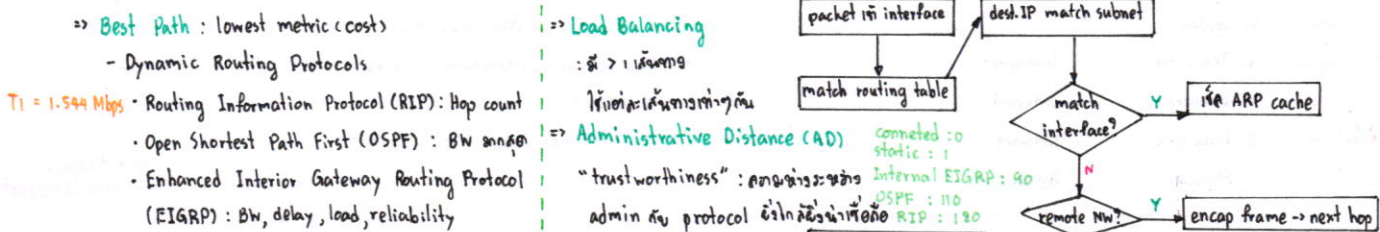 => Best Path : lowest metric (cost)
- Dynamic Routing Protocols
T1 = 1.544 Mbps
• Routing Information Protocol (RIP) : Hop count
• Open Shortest Path First (OSPF) : BW มากสุด
• Enhanced Interior Gateway Routing Protocol
(EIGRP) : BW, delay, load, reliability
=> Load Balancing
: มี > 1 เส้นทาง
ใช้แต่ละเส้นทางเท่าๆกัน
=> Administrative Distance (AD)
"trustworthiness" : ความห่างระหว่าง
admin กับ protocol ยิ่งใกล้ยิ่งน่าเชื่อถือ
conneted : 0
static : 1
Internal EIGRP : 90
OSPF : 110
RIP : 120
packet เข้า interface
match routing table
dest.IP match subnet
match
interface?
Y
เช็ค ARP cache
N
remote NW?
Y
encap frame -> next hop